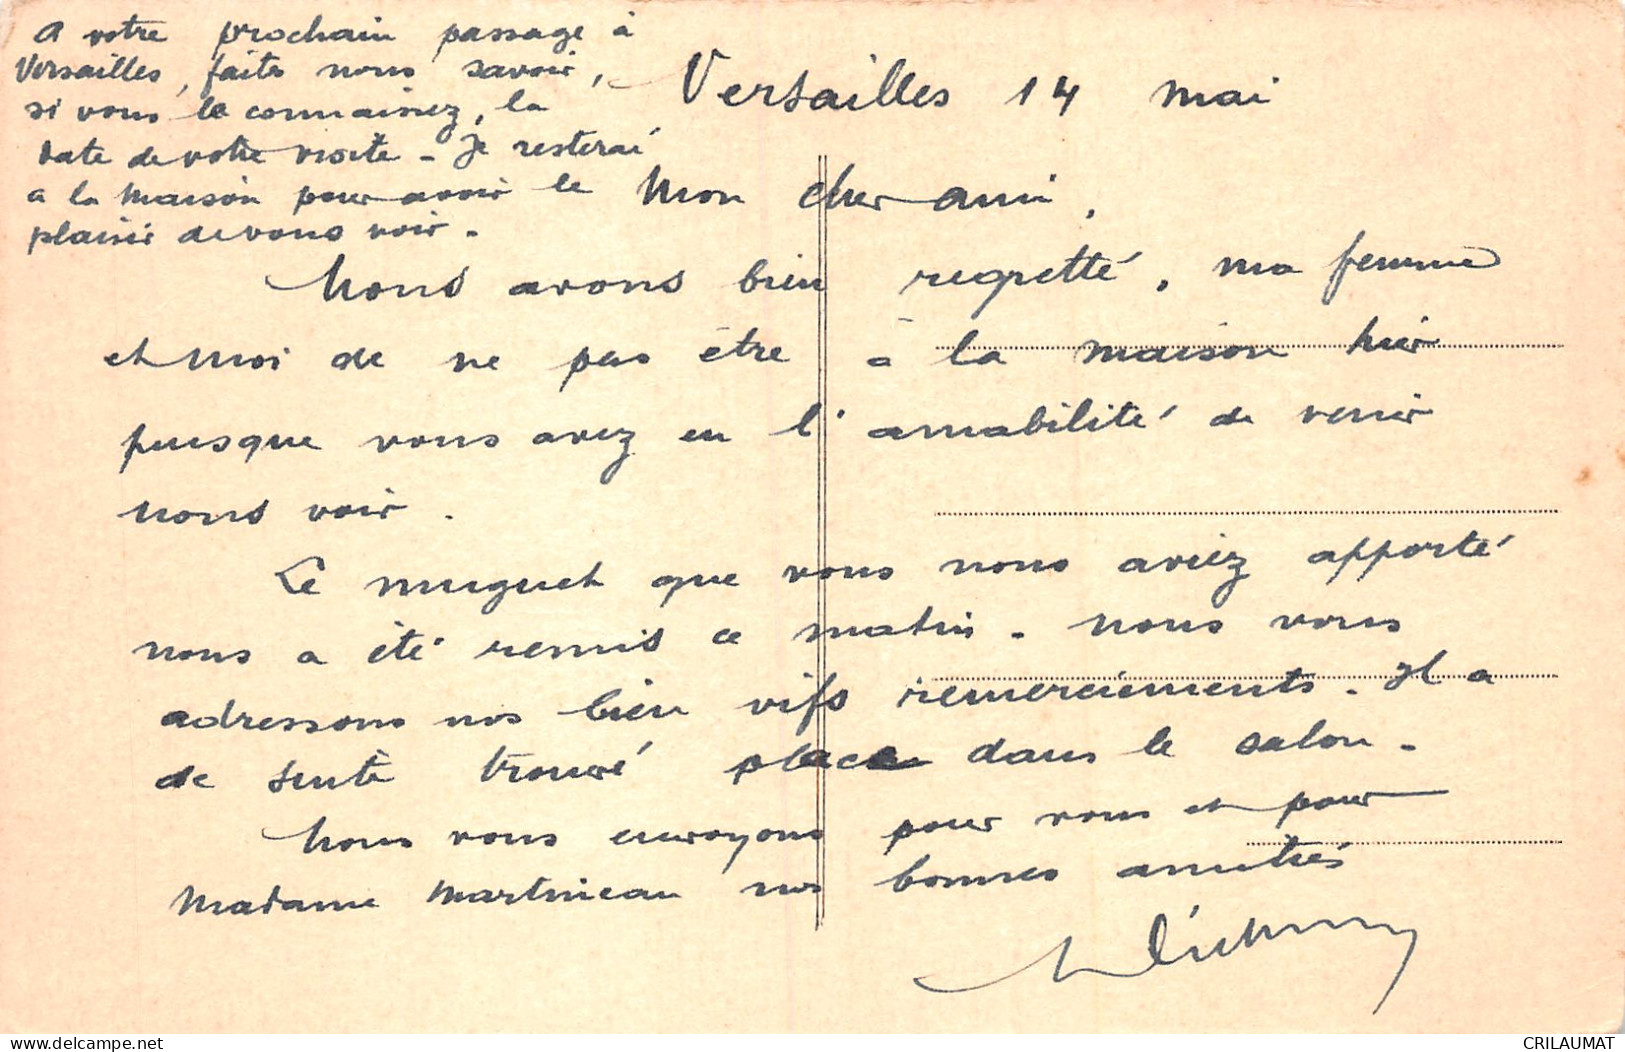 Versailles 14 mai
Mon cher ami,
Nous avons bien regretté, ma femme
et moi de ne pas être à la maison hier
puisque vous avez eu l'amabilité de venir
nous voir.
Le muguet que vous nous aviez apporté
nous a été remis ce matin. nous vous
adressons nos bien vifs remerciements. Il a
de suite trouvé place dans le salon.
Nous vous envoyons pour vous et pour
Madame Martineau nos bonnes amitiés
A votre prochain passage à
Versailles, faites nous savoir,
si vous le connaissez, la
date de votre visite - Je resterai
à la maison pour avoir le
plaisir de vous voir -
delcampe.net
CRILAUMAT